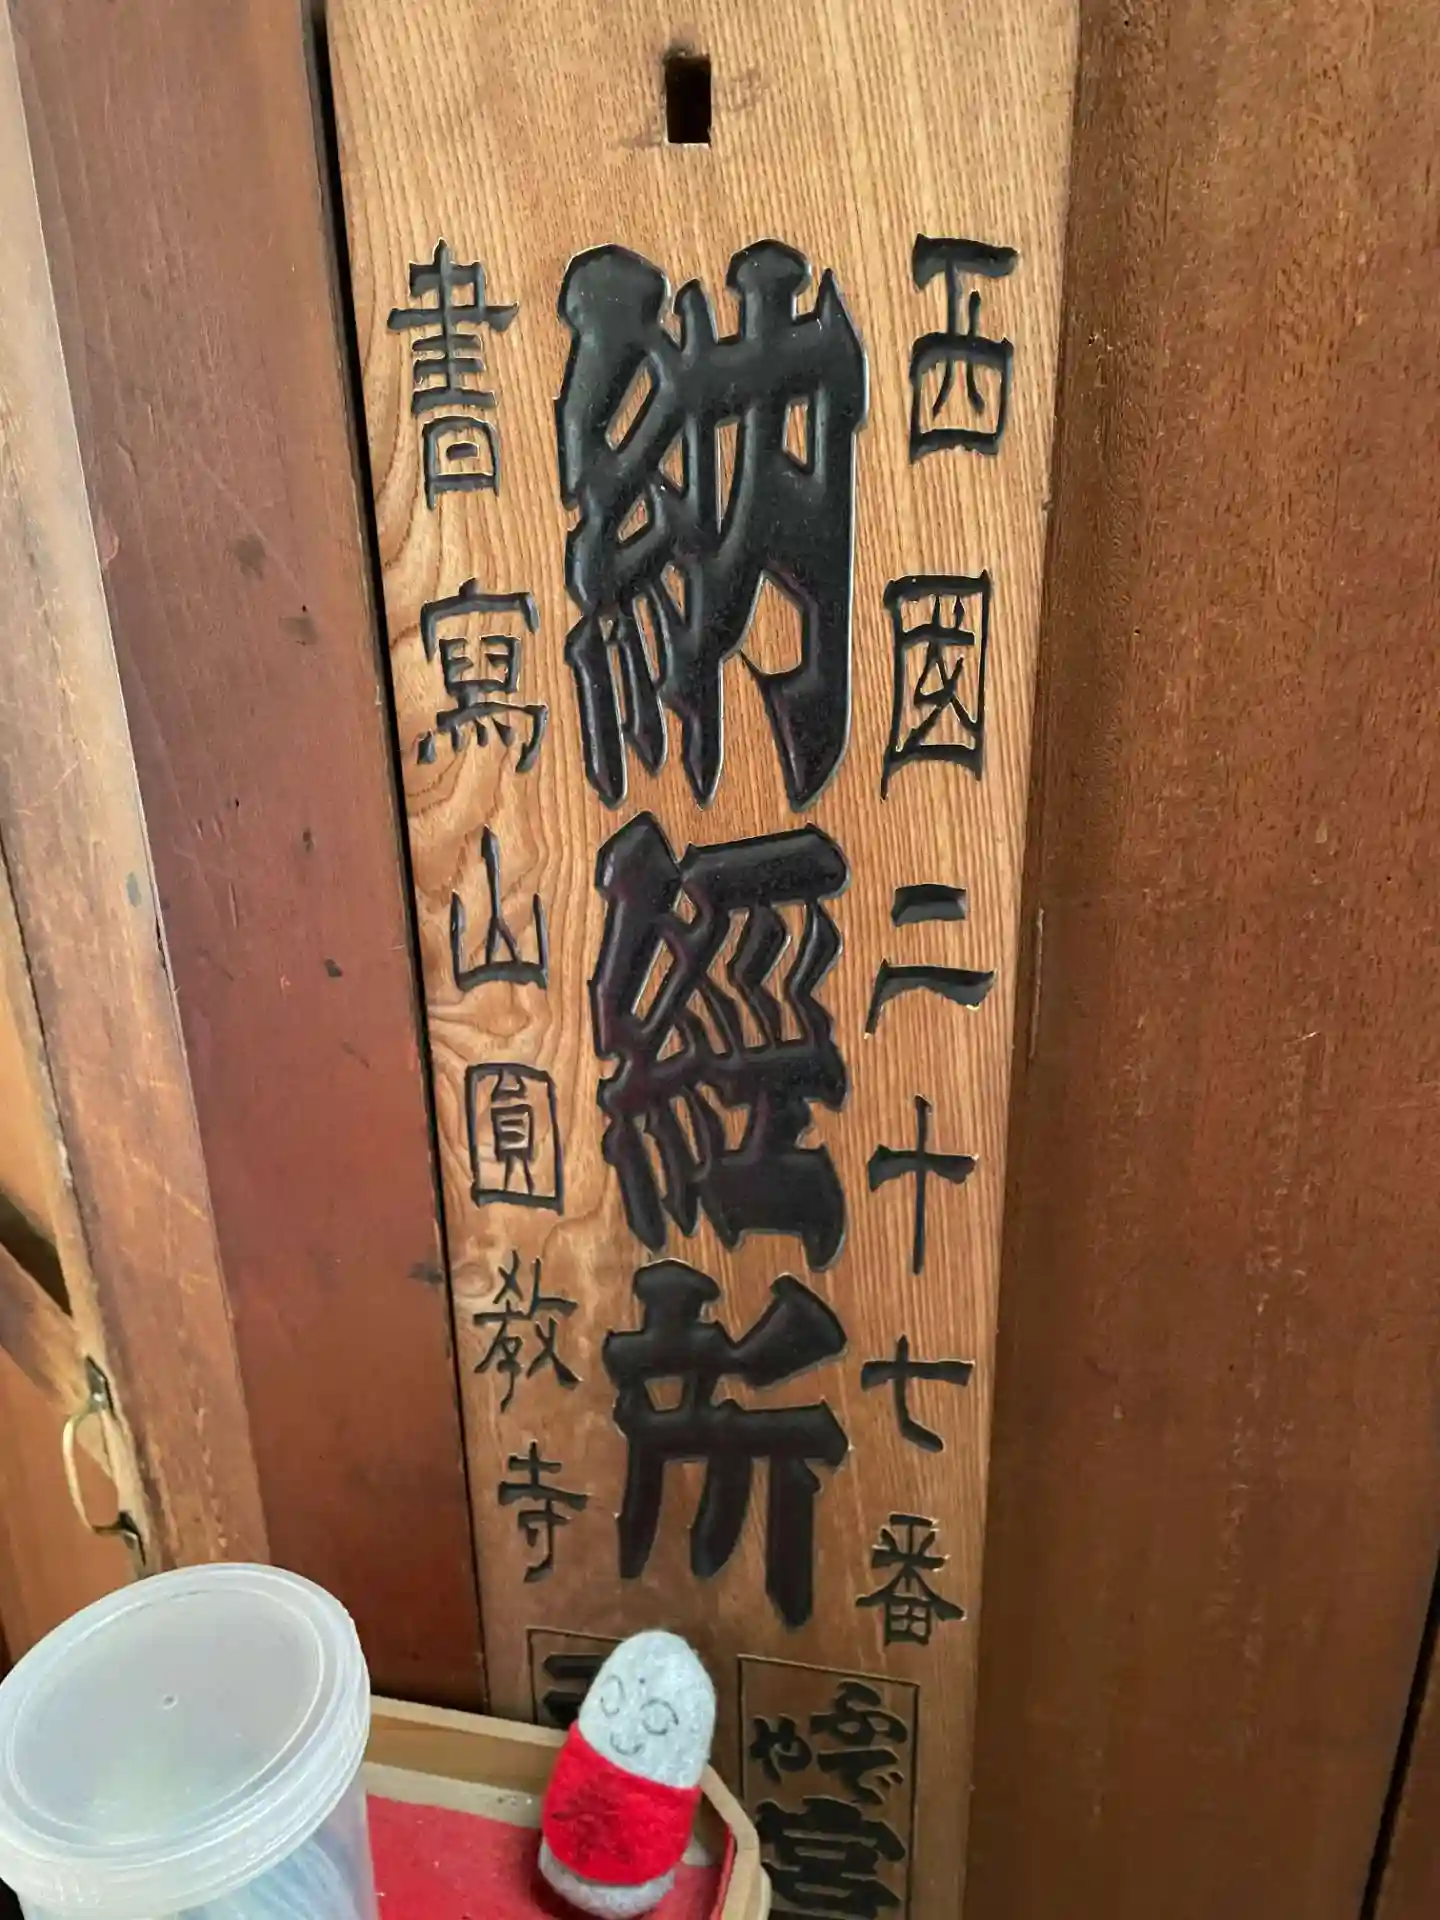 西國二十七番
納經所
書寫山圓教寺
ふでや
宮